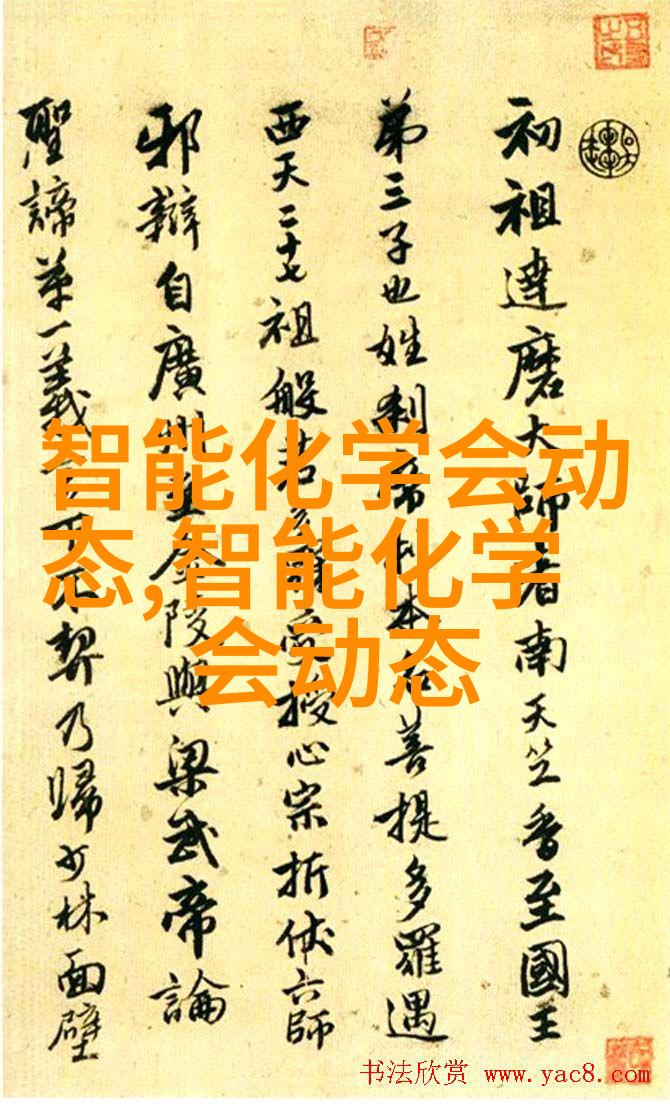 初祖達磨大師者南天竺香至國王
第三子也姓刹帝利本名菩提多羅遇
西天二十七祖般若多羅受授心宗折伏六師
邪辯自廣州至金陵與梁武帝論
聖諦第一義 不契乃歸少林面壁
智能化学会动
态,智能化学
会动态
书法欣赏 www.yac8.com